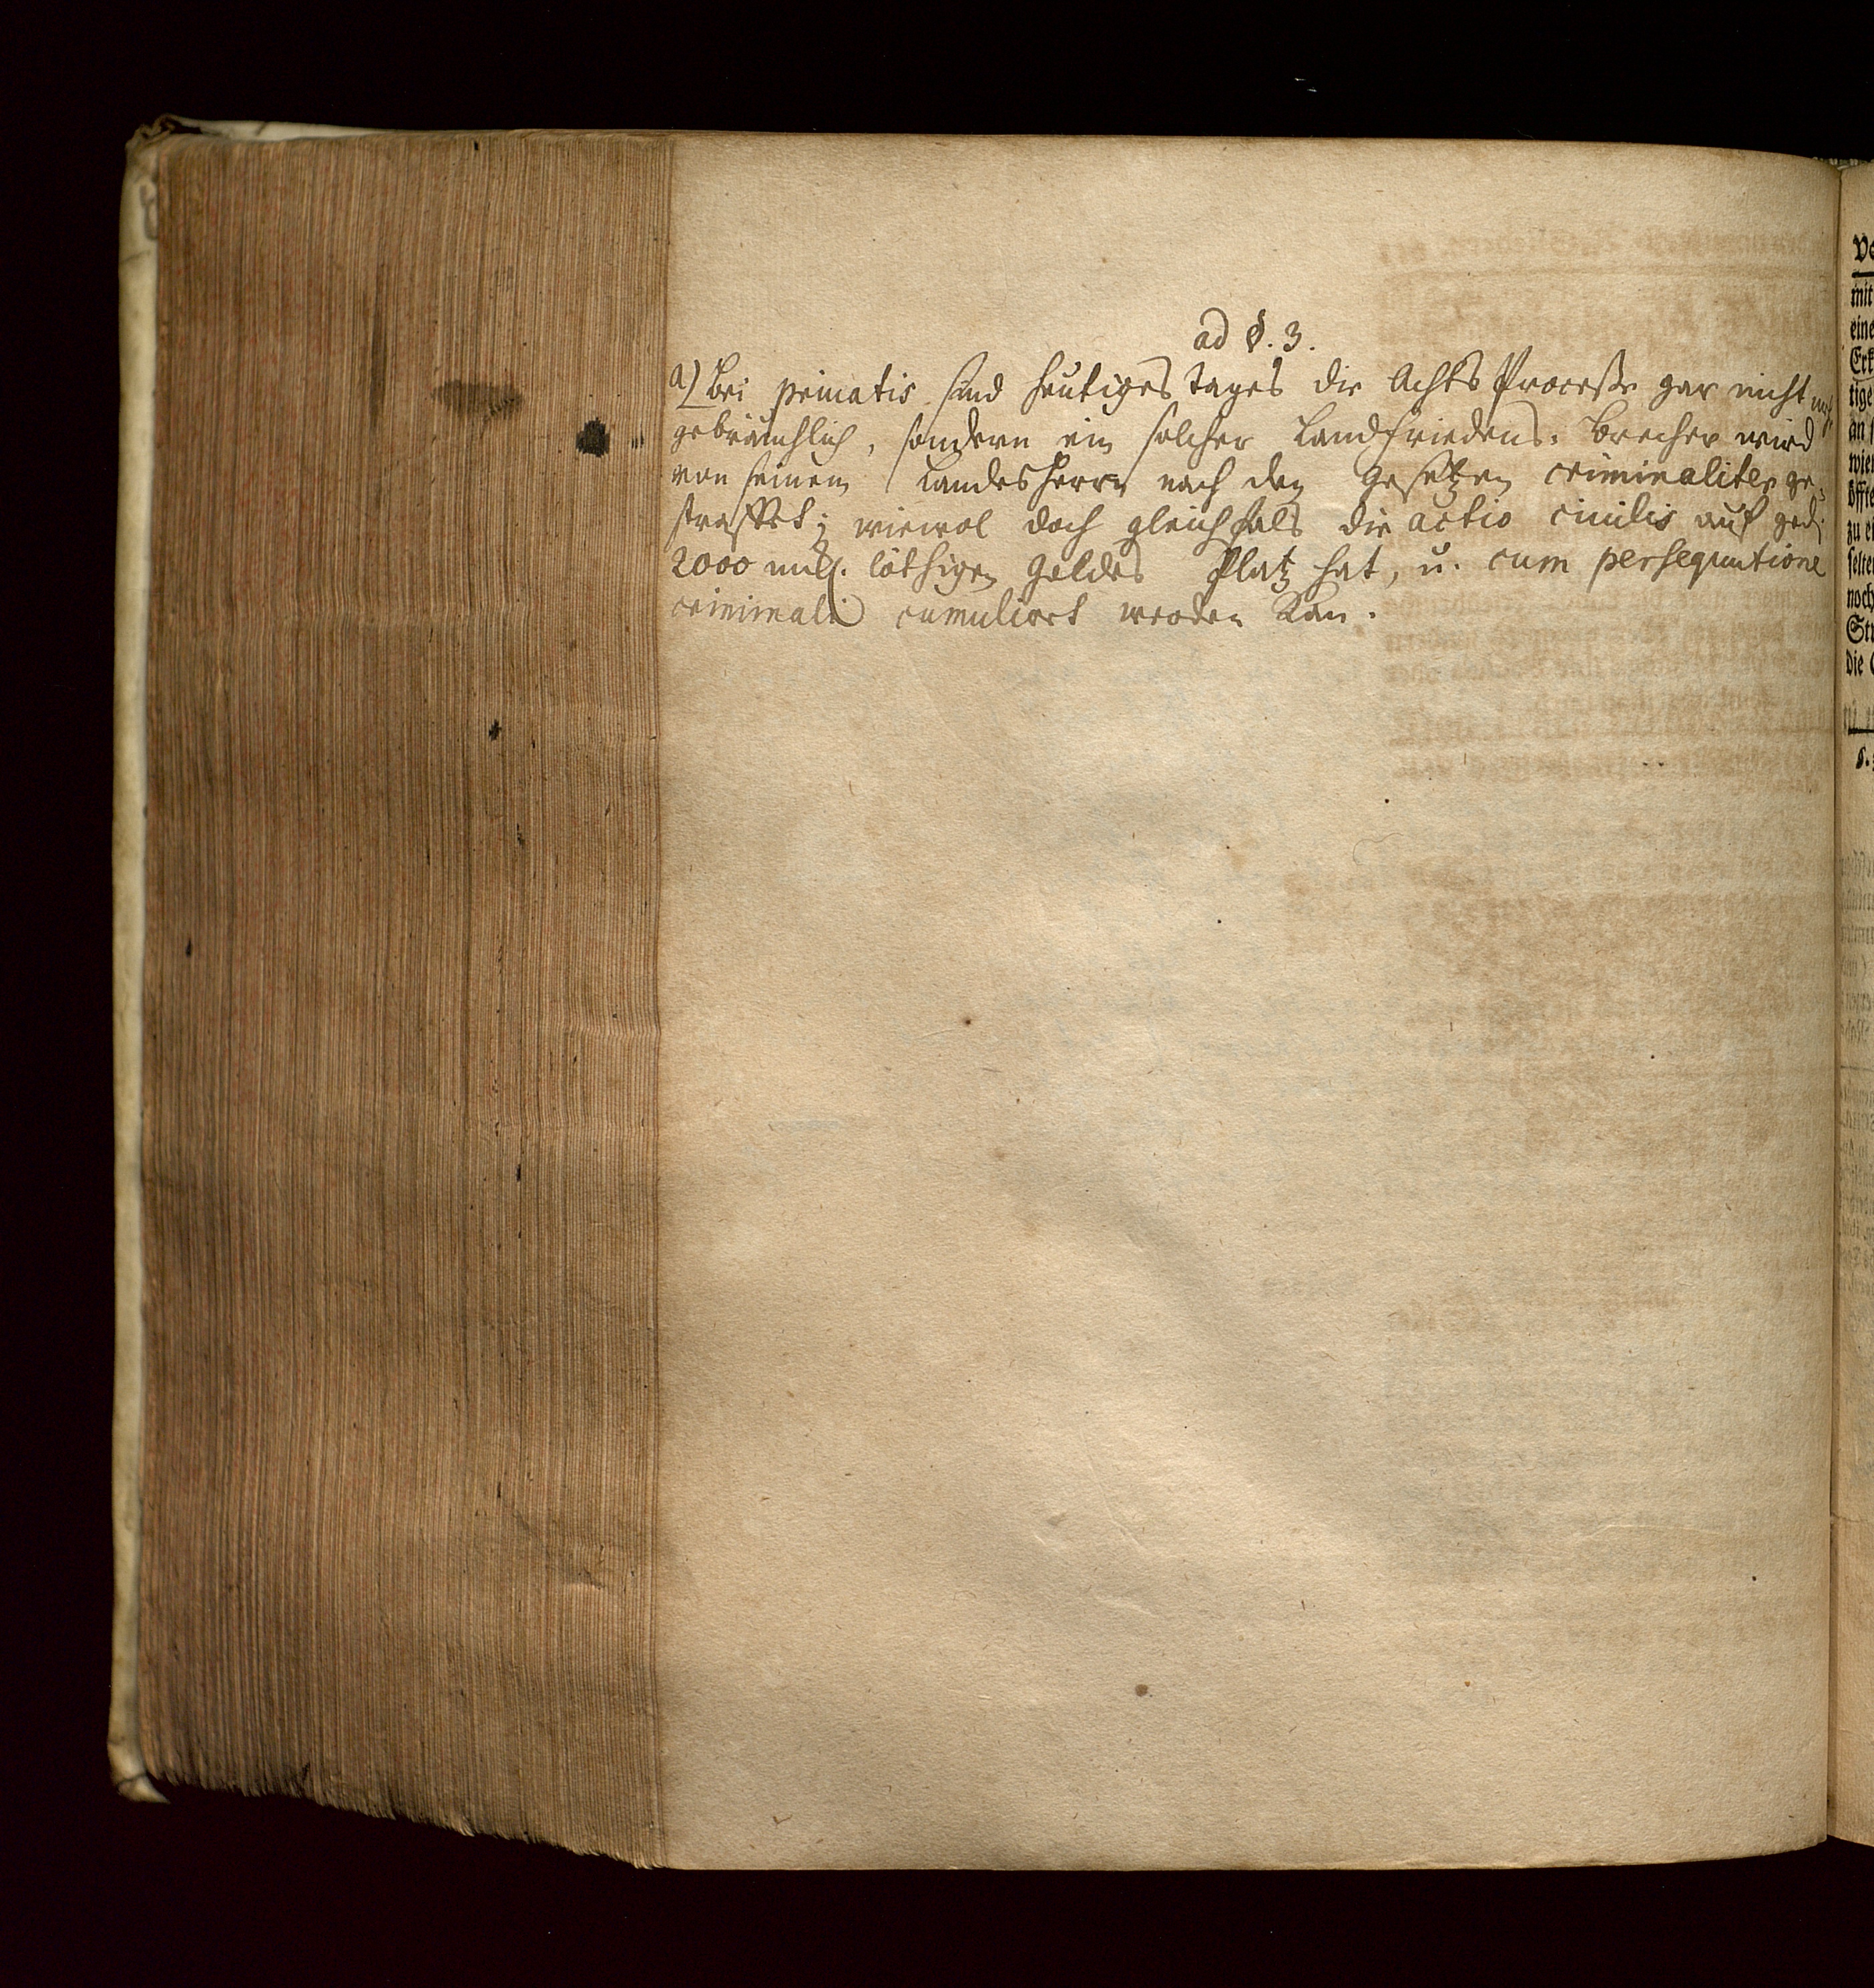 ad §. 3.
a) Bei privatis sind heutiges Tages die Achts Processe gar nicht
gebräuchlich, sondern ein solcher Landfriedens-Brecher wird
von seinem Landes Herrn nach den Gesetzen criminaliter ge-
straffet; wiewol doch gleichfals die actio civilis auf
2000 löthigen Goldes Platz hat, u. cum persequutione
criminali cumulirt werden kan.
mit
eine
tige
an
wie
zu
noch
die